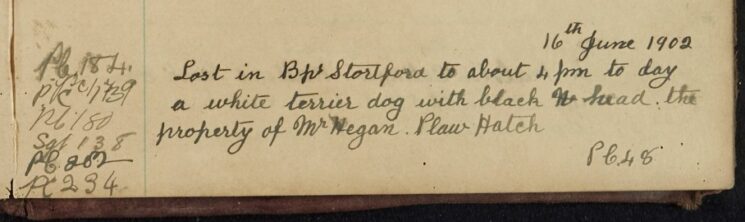 16th June 1902
Lost in Bp's Stortford to about 4 pm to day
a white terrier dog with black head. the
property of Mr Hegan. Plaw Hatch
PC 48
PC 184.
PC 
Sgt 138
PC 282
PC 234